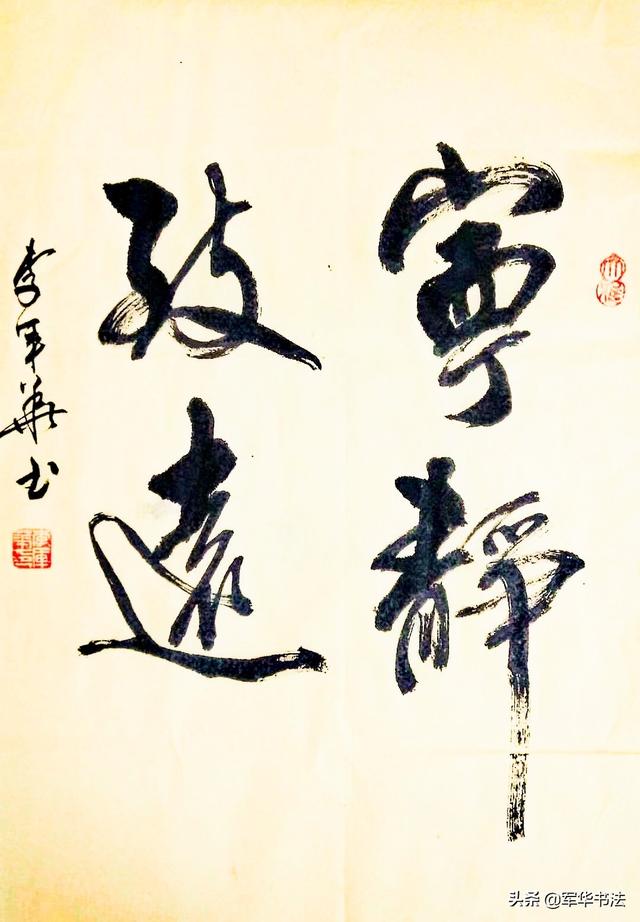 寧靜
致遠
李军華书
头条 @军华书法